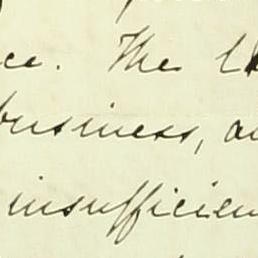 ce. The
business, a
insufficien